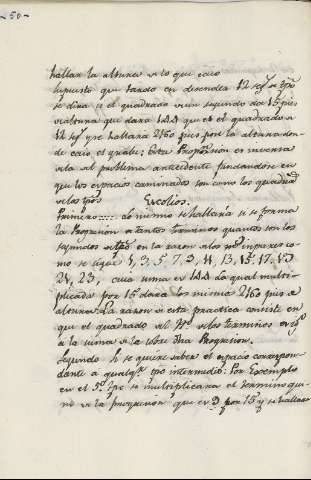 -50-
hallar la altura de lo que caió
supuesto que tardó en descender 12 segs de tpo
se dirá si el quadrado de un segundo da 15 pies
de altura que dará 144 que es el quadrado de
12 segs y se hallará 2160 pies por la altura don-
de caió el grabe: Esta Proposision es inversa
de la del problema antecedente fundandose en
que los espacios caminados son como los quadrads
de los tpos Escolios.
Primero lo mismo se hallaria si se forma
la Progresion de tantos terminos quantos son los
segundos de tpo en la razon de los nos inpares co-
mo se sigue 1, 3, 5, 7, 9, 11, 13, 15, 17, 19
21, 23, cuia suma es 144 la qual multi-
plicada por 15 dará los mismos 2160 pies de
altura. La razon de esta practica consiste en
que el quadrado del no de los terminos es igl
a la suma de la dha Progresion.
Segundo si se quiere saber el espacio correspon-
diente a qualqr tpo intermedio: Por Exemplo
en el 5o tpo se multiplicará el termino qui-
nto de la progresion que es 9 por 15 y se hallará